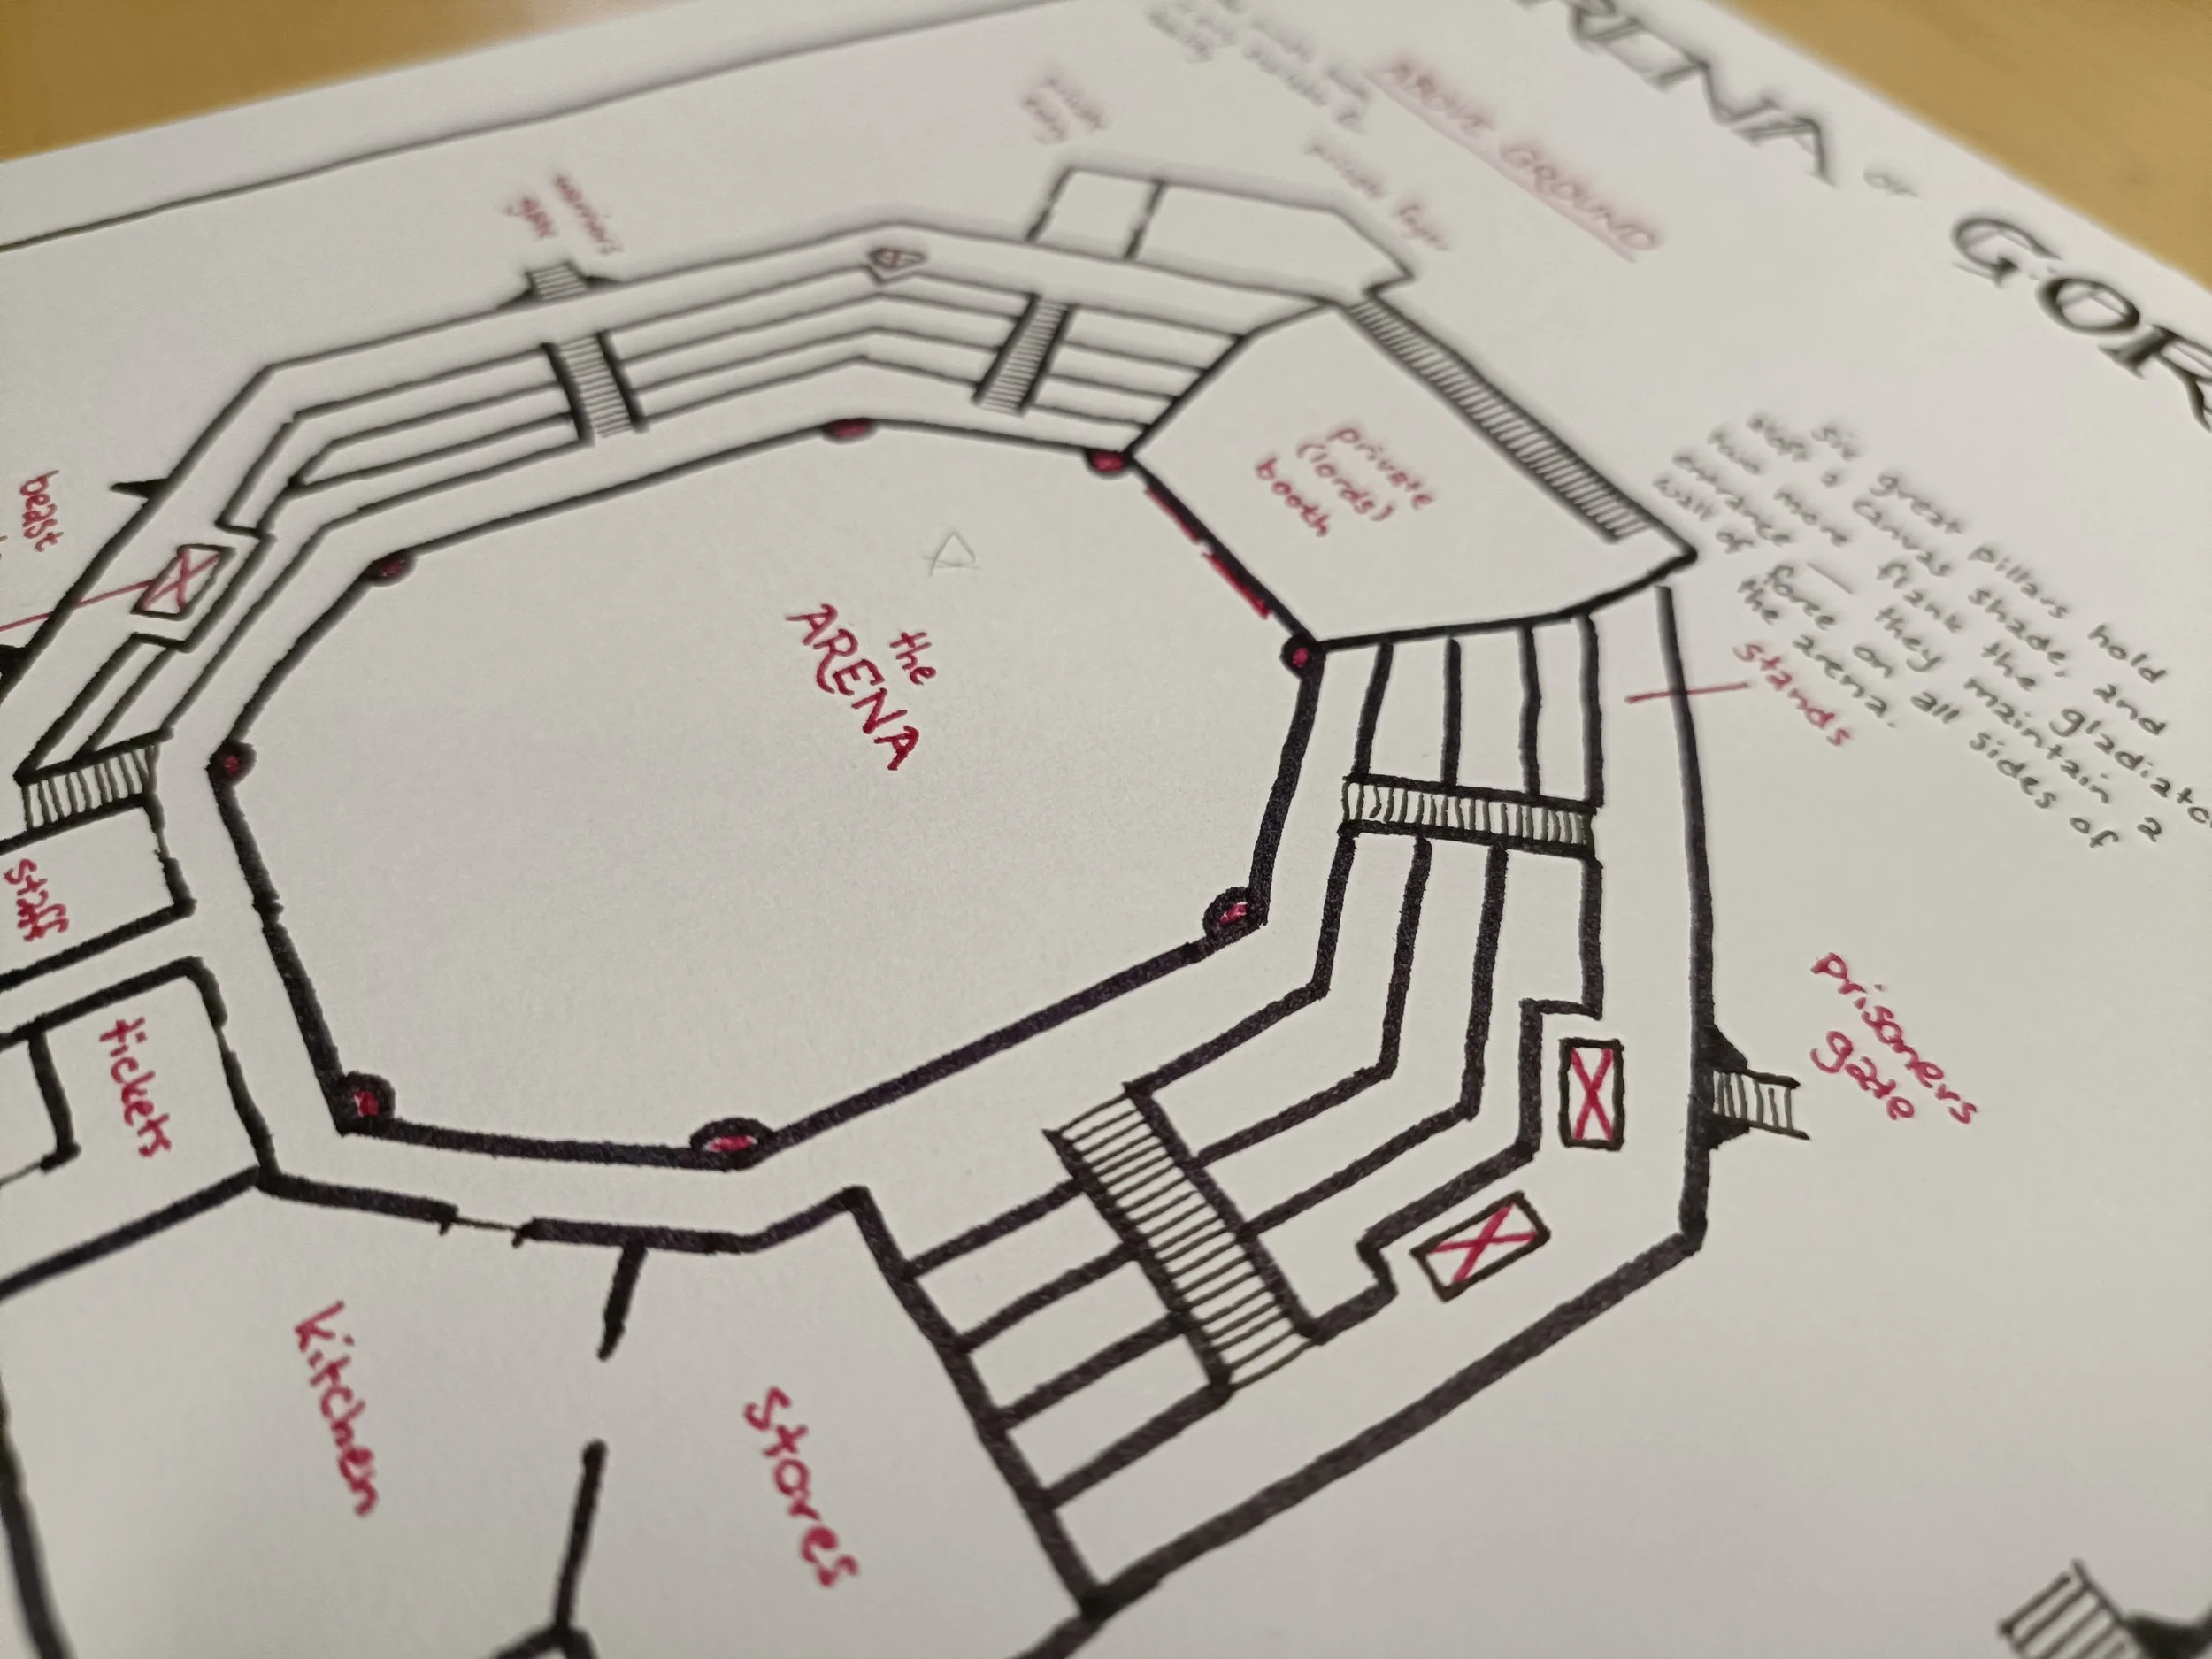 ARENA OF GOR
ABOVE GROUND
warriors
gate
beast
private
(lords)
booth
Six great pillars hold
aloft a canvas shade, and
two more flank the gladiator
entrance — they maintain a
wall of force on all sides of
the arena.
stands
the
ARENA
prisoners
gate
staff
tickets
kitchen
stores